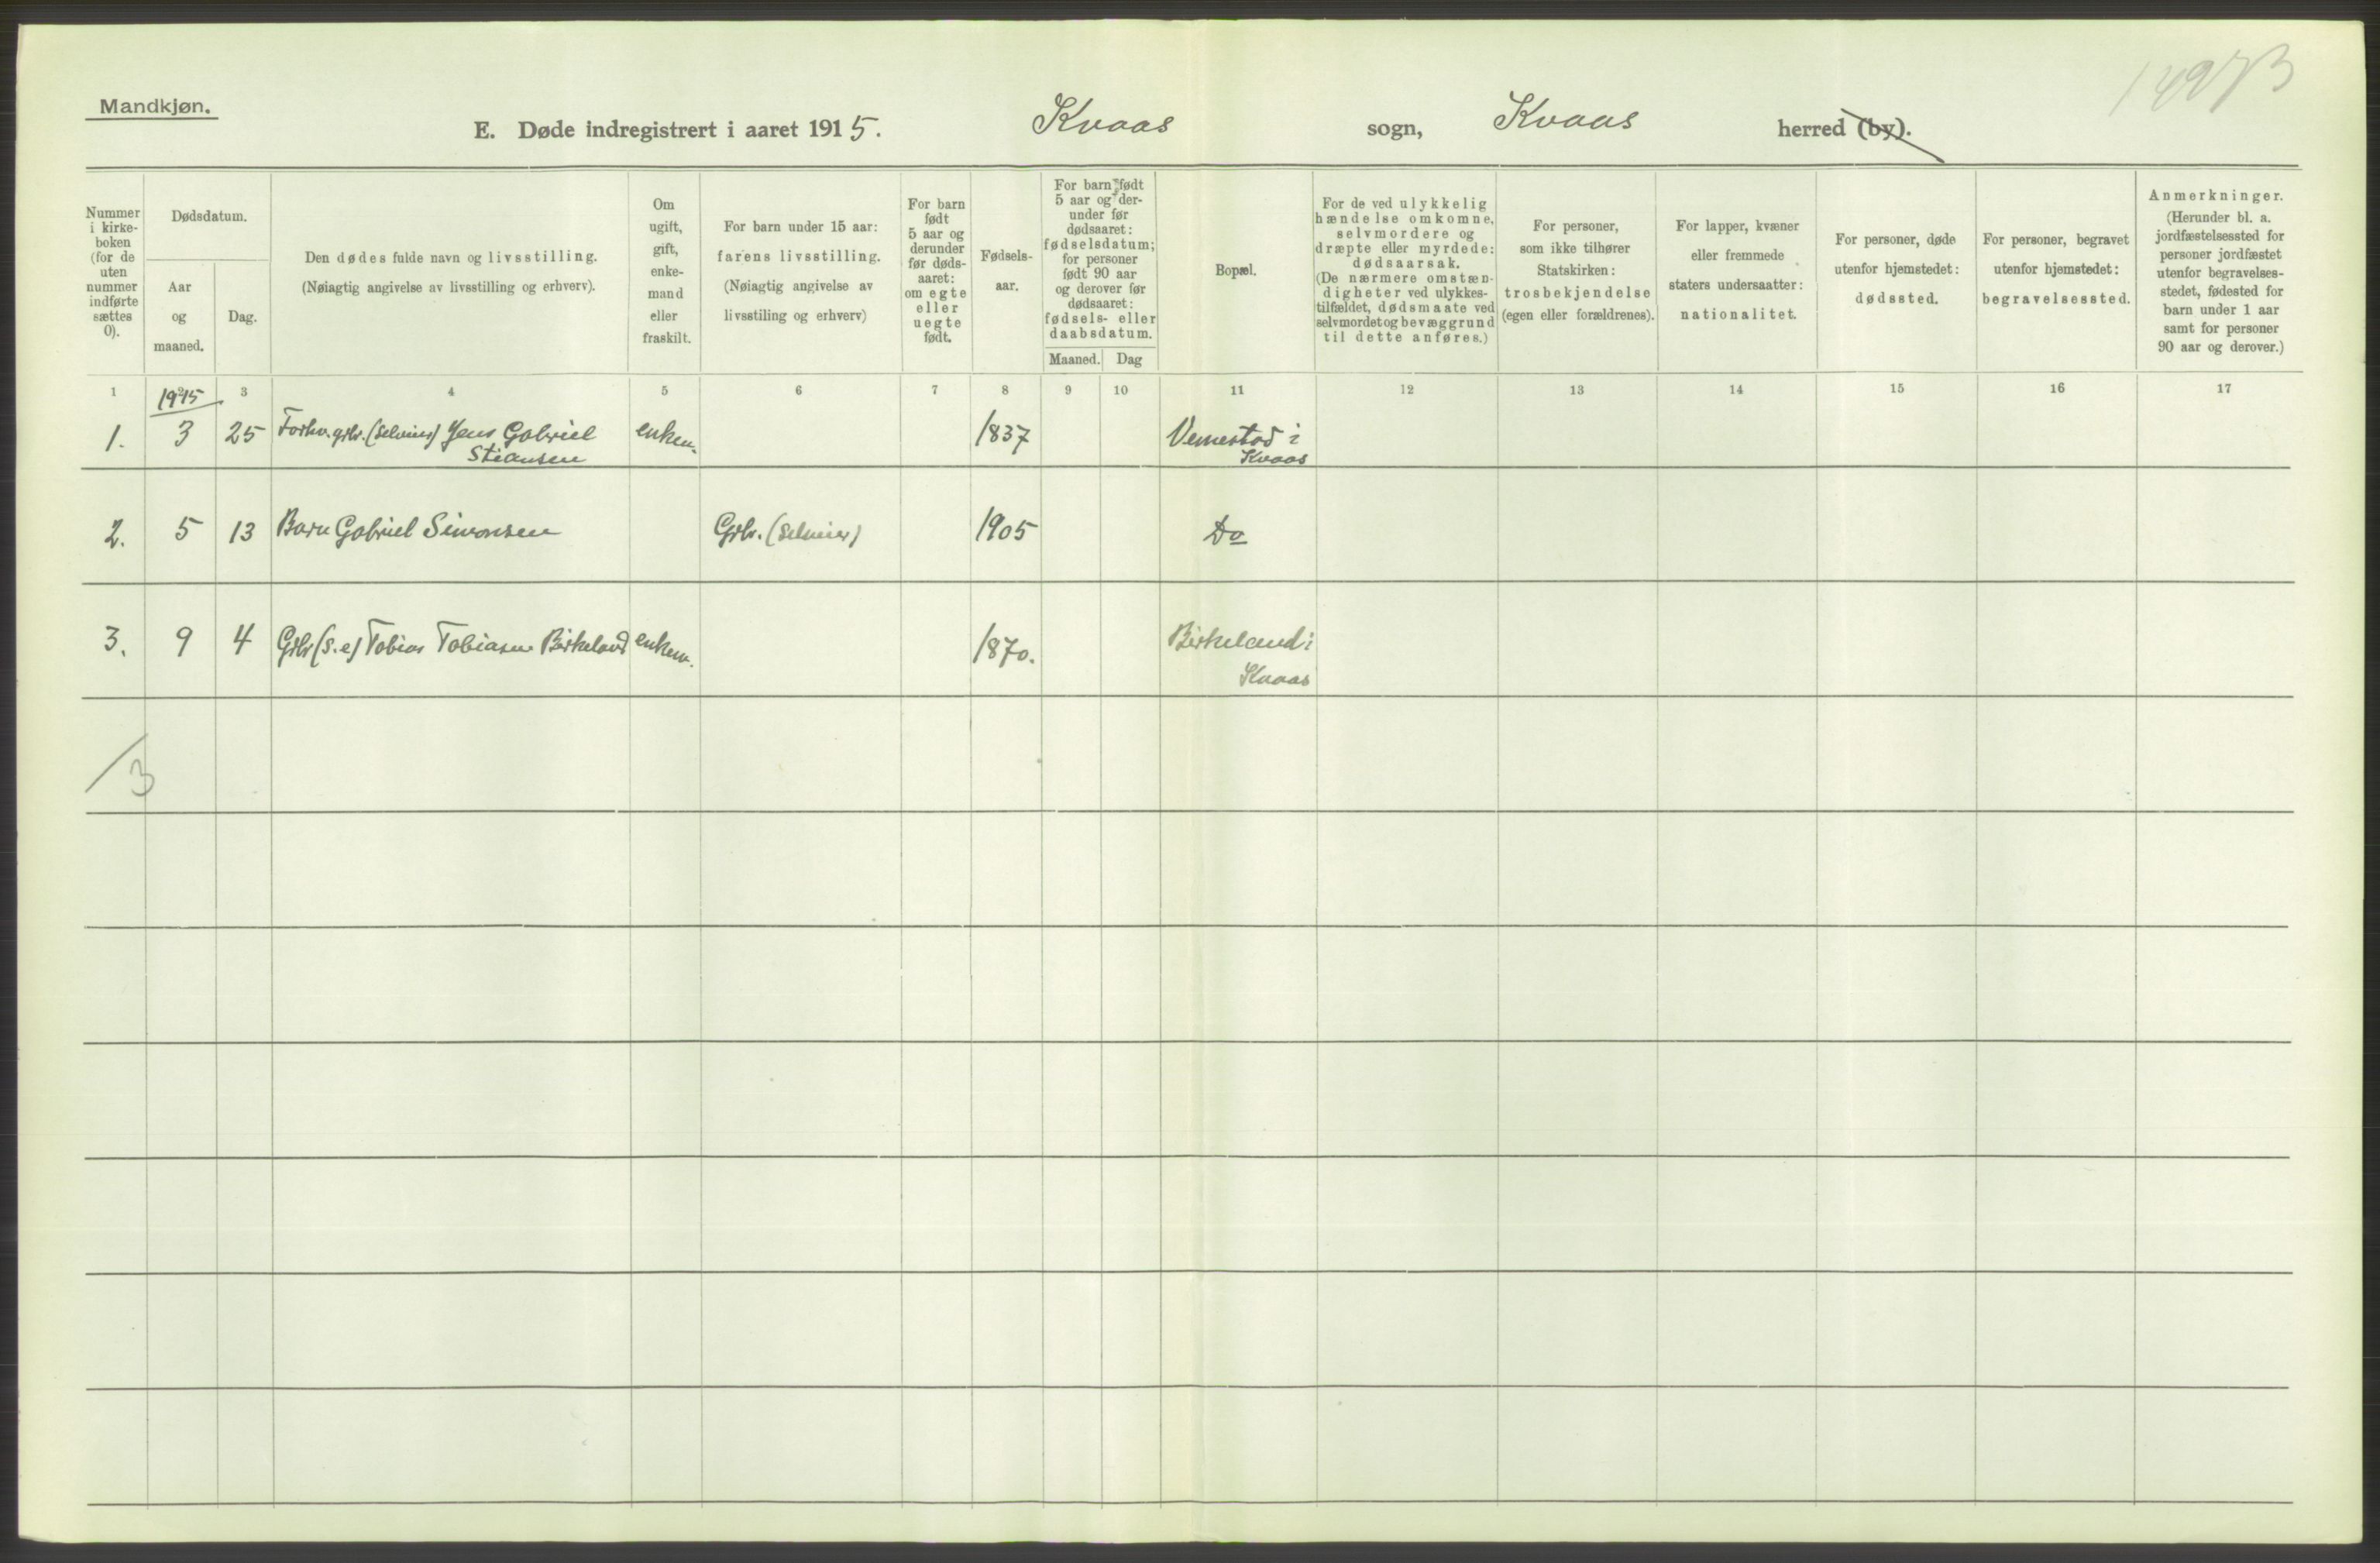 Mandkjøn.
E. Døde indregistrert i aaret 1915. Kvaas sogn, Kvaas herred (by).
Nummer i kirke-boken (for de uten nummer indførte sættes 0).
Dødsdatum.
Aar og maaned.
Dag.
Den dødes fulde navn og livsstilling.
(Nøiagtig angivelse av livsstilling og erhverv).
Om ugift, gift, enke-mand eller fraskilt.
For barn under 15 aar:
farens livsstilling.
(Nøiagtig angivelse av livsstiling og erhverv)
For barn født 5 aar og derunder før døds-aaret: om egte eller uegte født.
Fødsels-aar.
For barn født 5 aar og der-under før dødsaaret: fødselsdatum; for personer født 90 aar og derover før dødsaaret: fødsels- eller daabsdatum.
Maaned. Dag
Bopæl.
For de ved ulykkelig hændelse omkomne, selvmordere og dræpte eller myrdede: dødsaarsak.
(De nærmere omstæn-digheter ved ulykkes-tilfældet, dødsmaate ved selvmordet og bevæggrund til dette anføres.)
For personer, som ikke tilhører Statskirken: trosbekjendelse (egen eller forældrenes).
For lapper, kvæner eller fremmede staters undersaatter: nationalitet.
For personer, døde utenfor hjemstedet: dødssted.
For personer, begravet utenfor hjemstedet: begravelsessted.
Anmerkninger.
(Herunder bl. a. jordfæstelsessted for personer jordfæstet utenfor begravelses-stedet, fødested for barn under 1 aar samt for personer 90 aar og derover.)
1 2 3 4 5 6 7 8 9 10 11 12 13 14 15 16 17
1915
1. 3 25 Forhv. grbr. (selveier) Jens Gabriel enkem. 1837 Vemestad i
Stiansen Kvaas
2. 5 13 Barn Gabriel Simonsen Grbr. (selveier) 1905 Do
3. 9 4 Grbr (s.e) Tobias Tobiasen Birkeland enkem. 1870. Birkeland i
Kvaas
/3